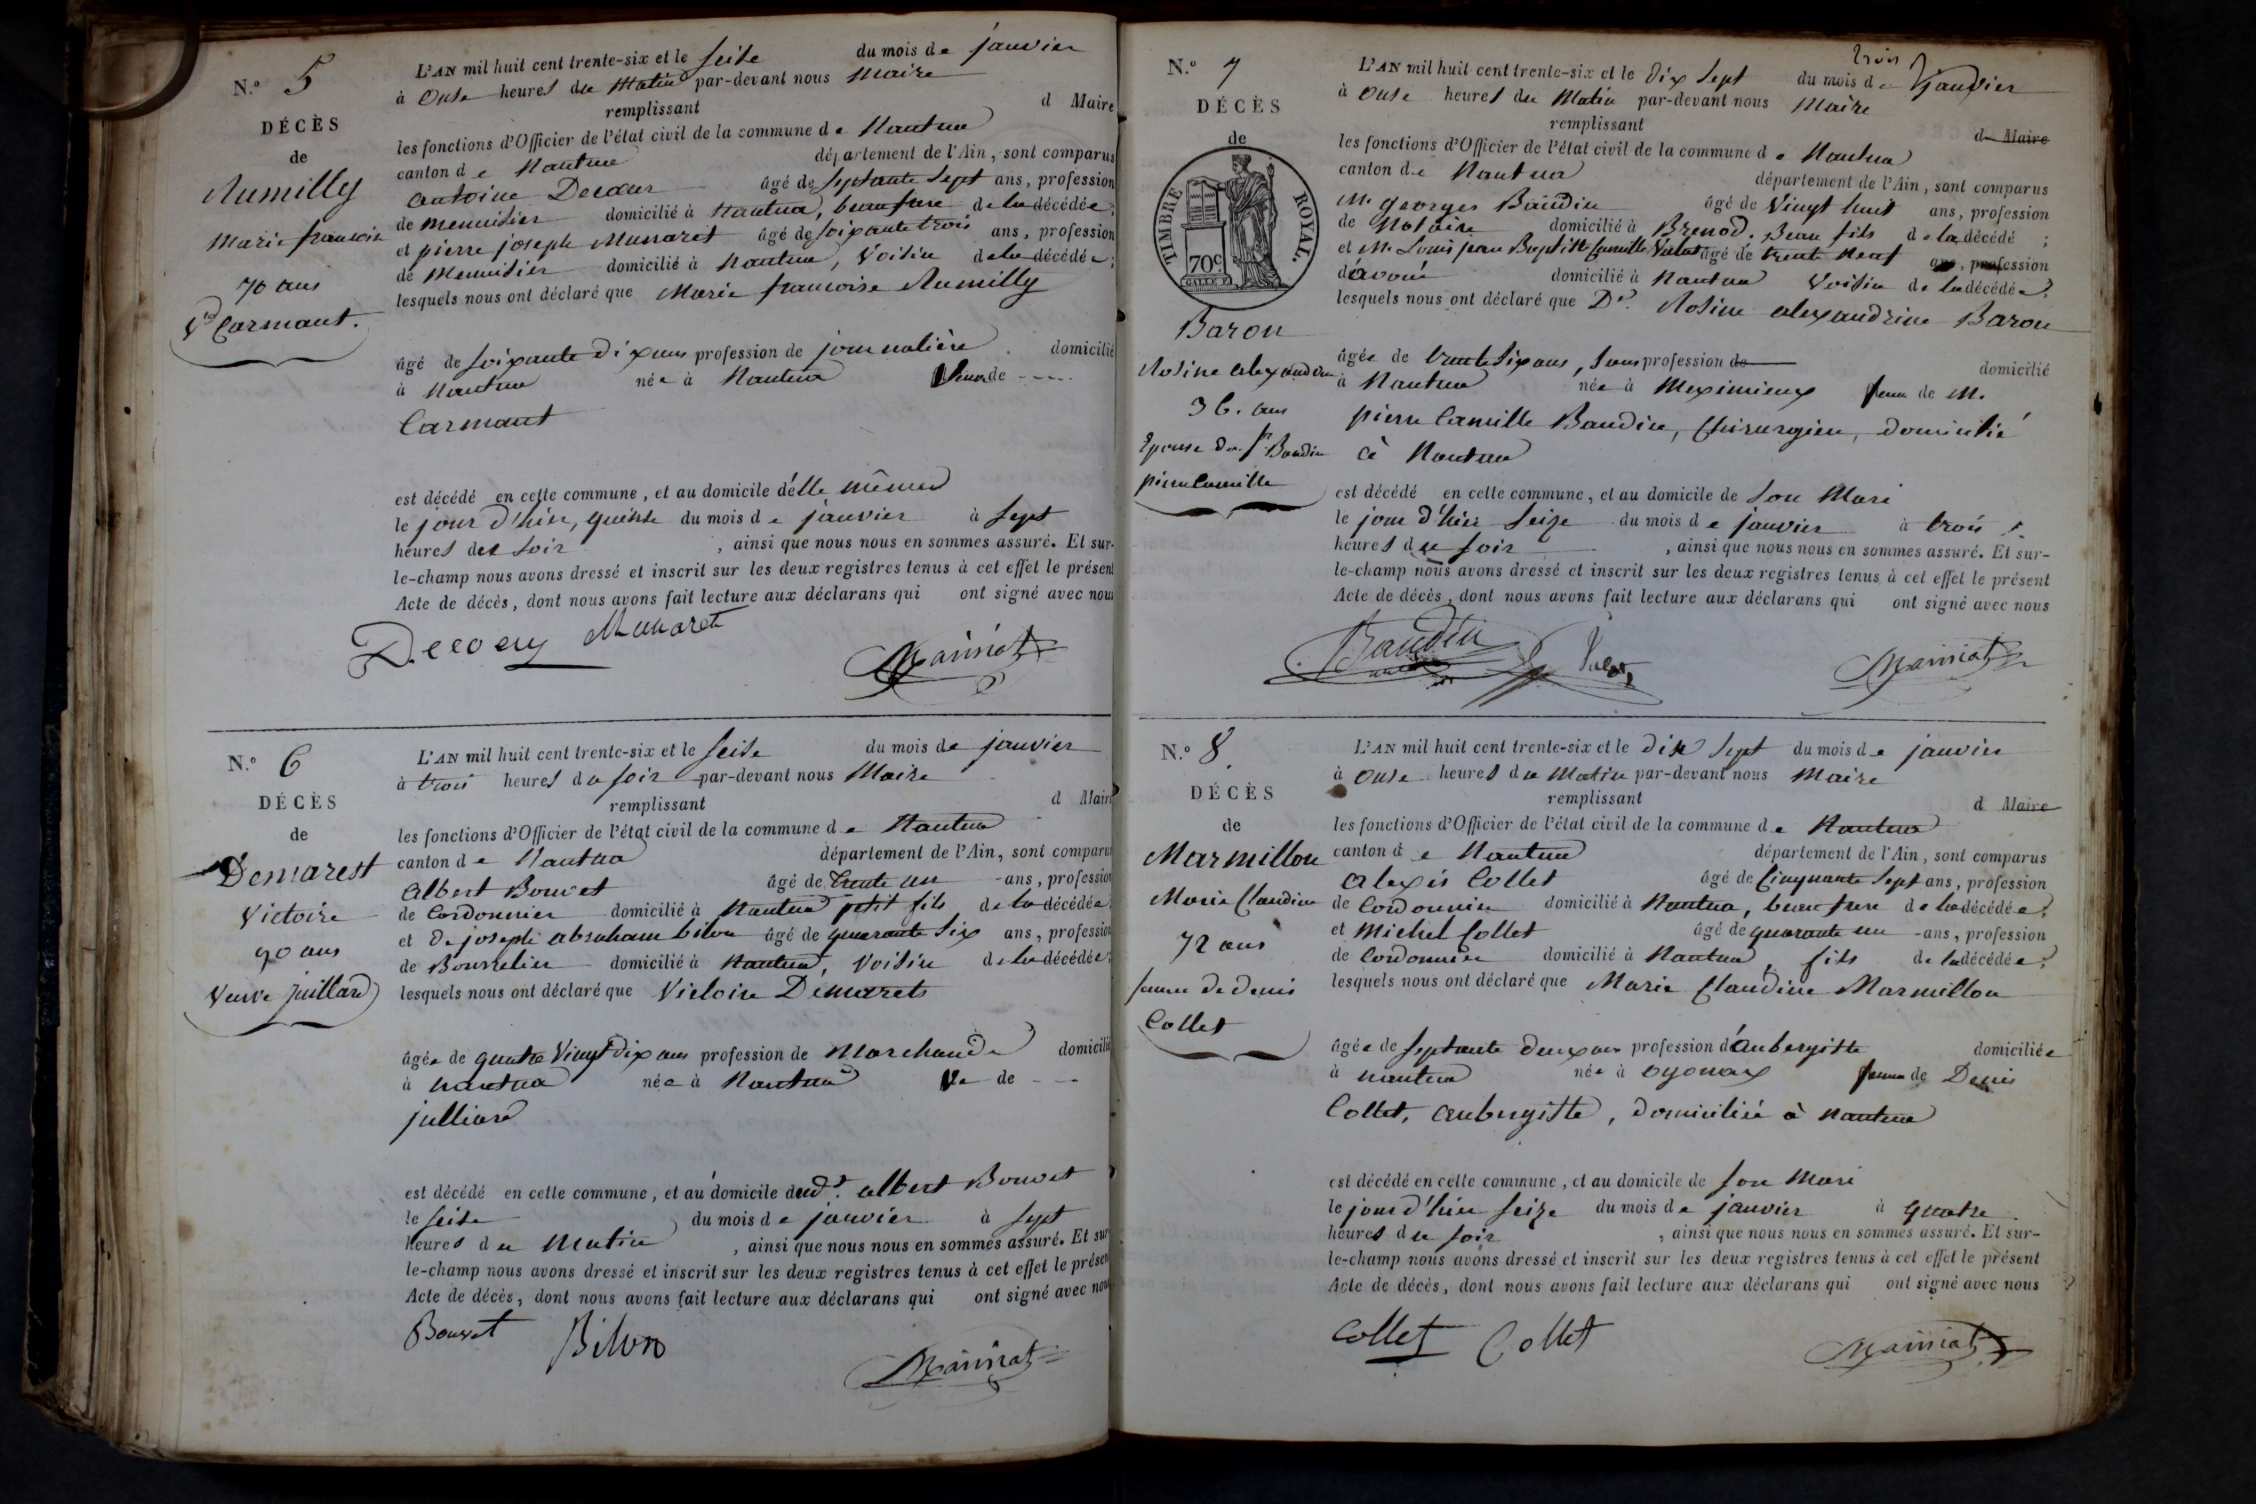 N.o 5
DÉCÈS
de
Rumilly
Marie françoise
70 ans
Ve Carmant.
L'AN mil huit cent trente-six et le seize du mois de janvier
à onze heures du matin par-devant nous Maire
remplissant d Maire
les fonctions d'Officier de l'état civil de la commune de Nantua
canton de Nantua département de l'Ain, sont comparus
antoine Decoeur âgé de septante sept ans, profession
de menuisier domicilié à Nantua, beaufrere de la décédée;
et pierre joseph Munaret âgé de soixante trois ans, profession
de Menuisier domicilié à Nantua, Voisin de la décédée;
lesquels nous ont déclaré que Marie francoise Rumilly
âgé de soixante dix ans profession de journalière domicilié
à Nantua née à Nantua Veuve de
Carmant
est décédé en cette commune, et au domicile d'elle même
le jour d'hier, quinze du mois de janvier à sept
heures du soir, ainsi que nous nous en sommes assuré. Et sur-
le-champ nous avons dressé et inscrit sur les deux registres tenus à cet effet le présent
Acte de décès, dont nous avons fait lecture aux déclarans qui ont signé avec nous
Munaret
Mainiat
N.o 6
DÉCÈS
de
Demarest
Victoire
90 ans
Veuve Juillard
L'AN mil huit cent trente-six et le seize du mois de janvier
à trois heures du soir par-devant nous Maire
remplissant d Maire
les fonctions d'Officier de l'état civil de la commune de Nantua
canton de Nantua département de l'Ain, sont comparus
albert Bouvet âgé de trente un ans, profession
de Cordonnier domicilié à Nantua petit fils de la décédée
et de joseph abraham bilon âgé de quarante six ans, profession
de Bourrelier domicilié à Nantua, Voisin de la décédée;
lesquels nous ont déclaré que Victoire Demarets
âgée de quatre Vingt dix ans profession de Marchande domicilié
à nantua née à Nantua Ve de
julliard
est décédé en cette commune, et au domicile dud.t albert Bouvet
le seize du mois de janvier à sept
heures du Matin, ainsi que nous nous en sommes assuré. Et sur
le-champ nous avons dressé et inscrit sur les deux registres tenus à cet effet le présent
Acte de décès, dont nous avons fait lecture aux déclarans qui ont signé avec nous
Bouvet Bilon
Mainiat
N.o 7
DÉCÈS
de
TIMBRE ROYAL.
70c
Baron
Rosine alexandrine
36. ans
Epouse de Sr Baudin
pierre Camille
trois
L'AN mil huit cent trente-six et le dix sept du mois de Janvier
à onze heures du Matin par-devant nous Maire
remplissant d Maire
les fonctions d'Officier de l'état civil de la commune de Nantua
canton de Nantua département de l'Ain, sont comparus
Mr georges Baudin âgé de Vingt huit ans, profession
de Notaire domicilié à Brenod. Beau fils de la décédé;
et Mr Louis jean Baptiste Camille âgé de trente neuf ans, profession
d'avoué domicilié à Nantua Voisin de la décédée.
lesquels nous ont déclaré que De. Rosine alexandrine Baron
âgée de trente six ans, sans profession de domicilié
à Nantua née à Meximieux femme de M.
pierre Camille Baudin, Chirurgien, domicilié
à Nantua
est décédé en cette commune, et au domicile de son Mari
le jour d'hier seize du mois de janvier à trois
heures du soir, ainsi que nous nous en sommes assuré. Et sur-
le-champ nous avons dressé et inscrit sur les deux registres tenus à cet effet le présent
Acte de décès, dont nous avons fait lecture aux déclarans qui ont signé avec nous
Baudin
Mainiat
N.o 8.
DÉCÈS
de
Marmillon
Marie Claudine
72 ans
femme de denis
Collet
L'AN mil huit cent trente-six et le dix sept du mois de janvier
à onze heures du Matin par-devant nous Maire
remplissant d Maire
les fonctions d'Officier de l'état civil de la commune de Nantua
canton de Nantua département de l'Ain, sont comparus
alexis Collet âgé de Cinquante sept ans, profession
de Cordonnier domicilié à Nantua, beau frere de la décédée;
et Michel Collet âgé de quarante un ans, profession
de Cordonnier domicilié à Nantua, fils de la décédée;
lesquels nous ont déclaré que Marie Claudine Marmillon
âgée de septante deux ans profession d'Aubergiste domiciliée
à nantua née à oyonax femme de Denis
Collet, aubergiste, domicilié à nantua
est décédé en cette commune, et au domicile de son Mari
le jour d'hier seize du mois de janvier à quatre
heures du soir, ainsi que nous nous en sommes assuré. Et sur-
le-champ nous avons dressé et inscrit sur les deux registres tenus à cet effet le présent
Acte de décès, dont nous avons fait lecture aux déclarans qui ont signé avec nous
Collet Collet
Mainiat